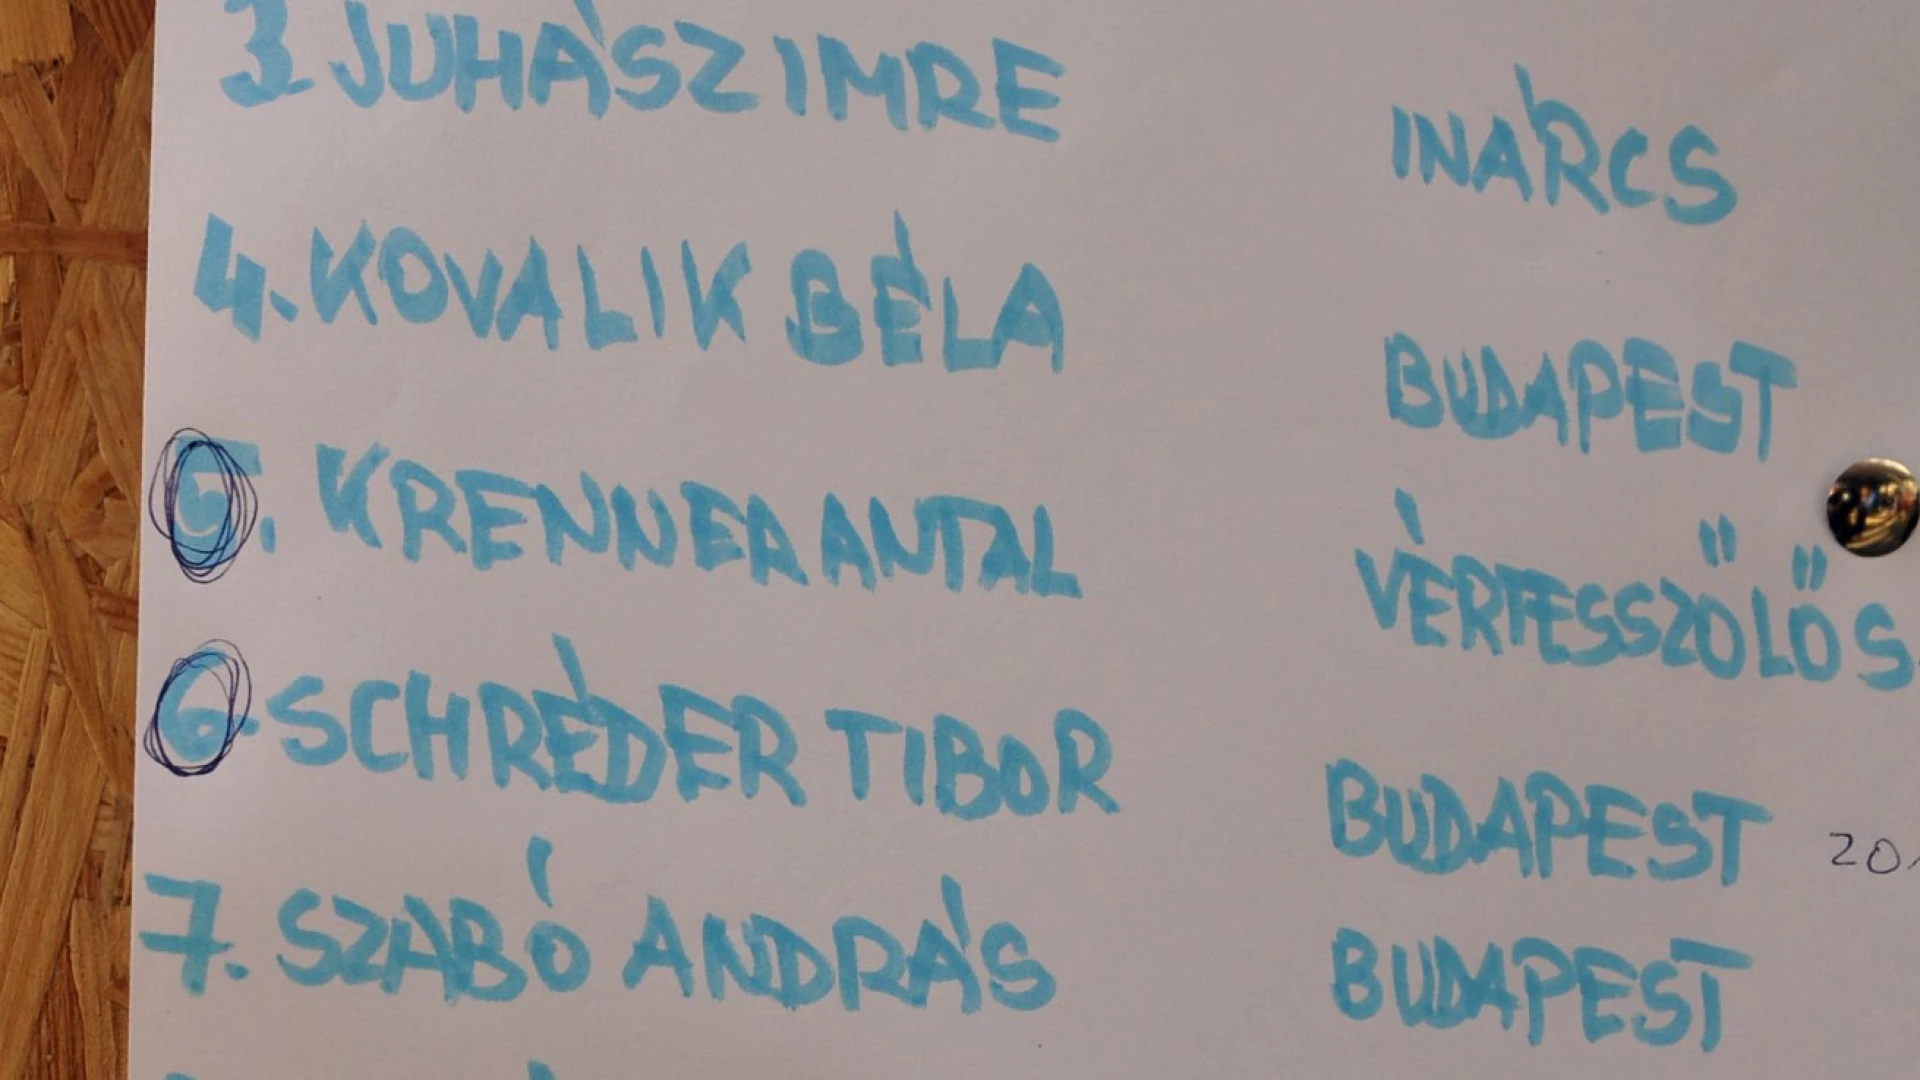 3. JUHÁSZ IMRE INÁRCS
4. KOVALIK BÉLA BUDAPEST
5. KRENNER ANTAL VÉRTESSZŐLŐS
6. SCHRÉDER TIBOR BUDAPEST
7. SZABÓ ANDRÁS BUDAPEST